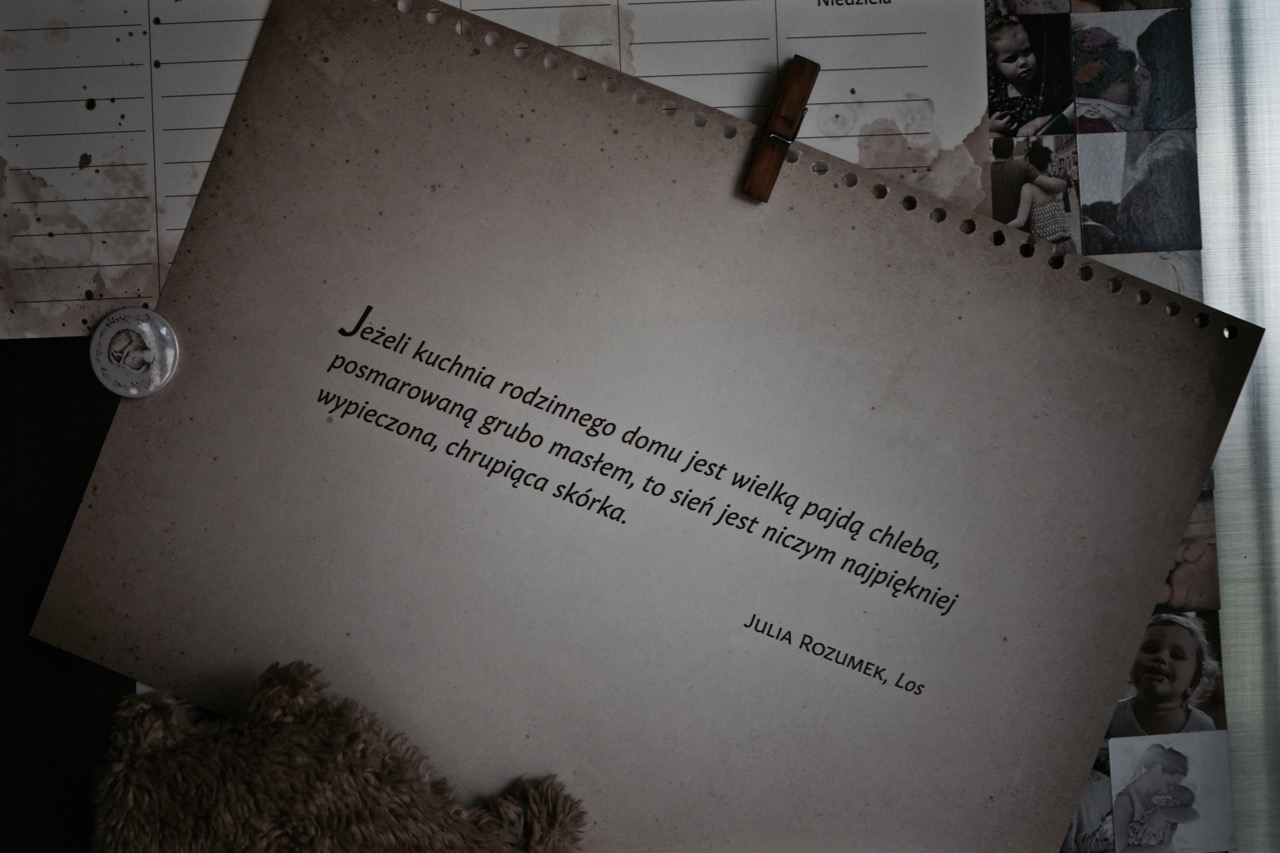 Niedziela
Jeżeli kuchnia rodzinnego domu jest wielką pajdą chleba,
posmarowaną grubo masłem, to sień jest niczym najpiękniej
wypieczona, chrupiąca skórka.
Julia Rozumek, Los